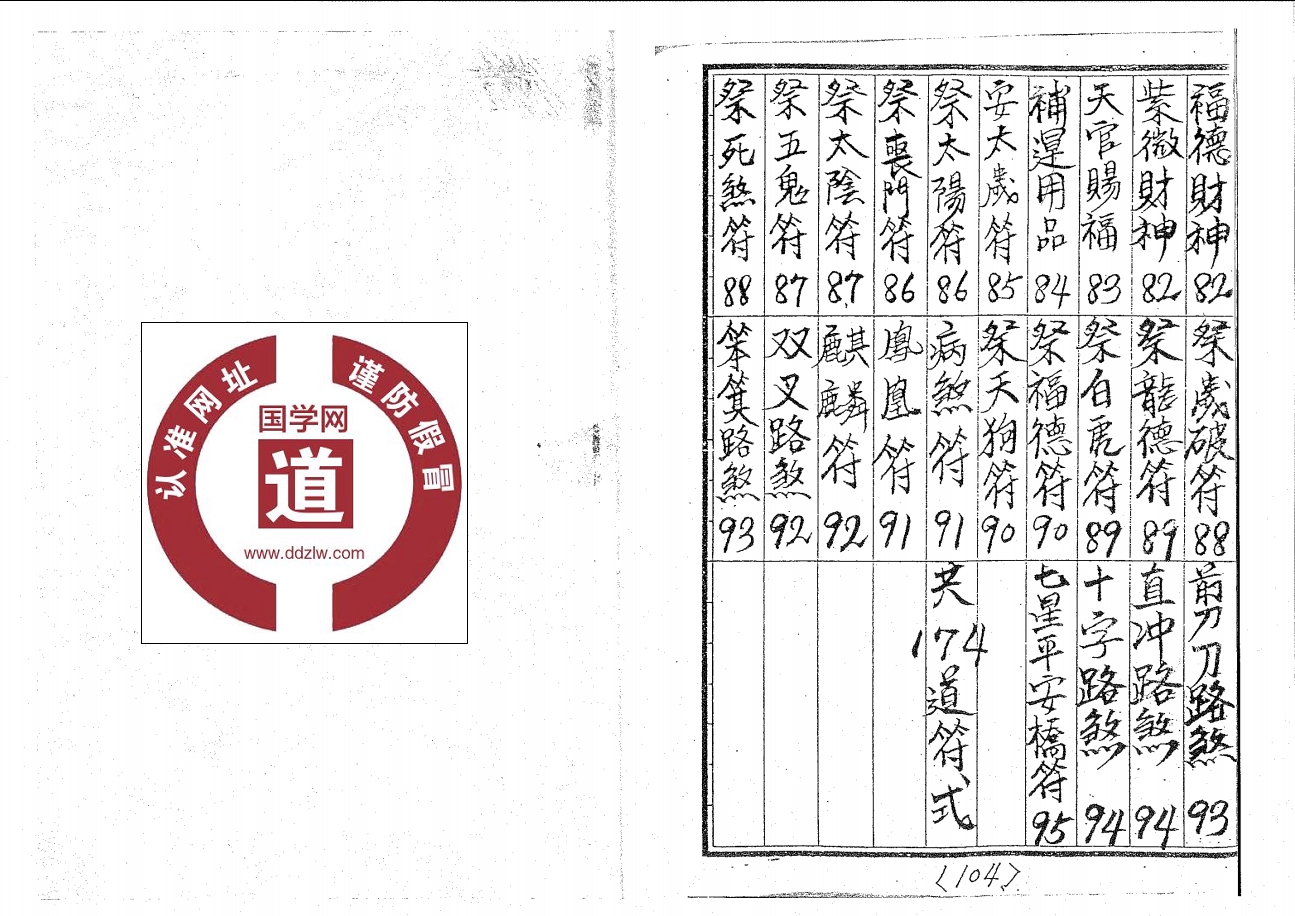 认准网址
谨防假冒
国学网
道
www.ddzlw.com
福德財神 82
紫微財神 82
天官賜福 83
補運用品 84
安太歲符 85
祭太陽符 86
祭喪門符 86
祭太陰符 87
祭五鬼符 87
祭死煞符 88
祭歲破符 88
祭龍德符 89
祭白虎符 89
祭福德符 90
祭天狗符 90
病煞符 91
鳳凰符 91
麒麟符 92
双叉路煞 92
笨箕路煞 93
剪刀路煞 93
直冲路煞 94
十字路煞 94
七星平安橋符 95
共174道符式
〈104〉